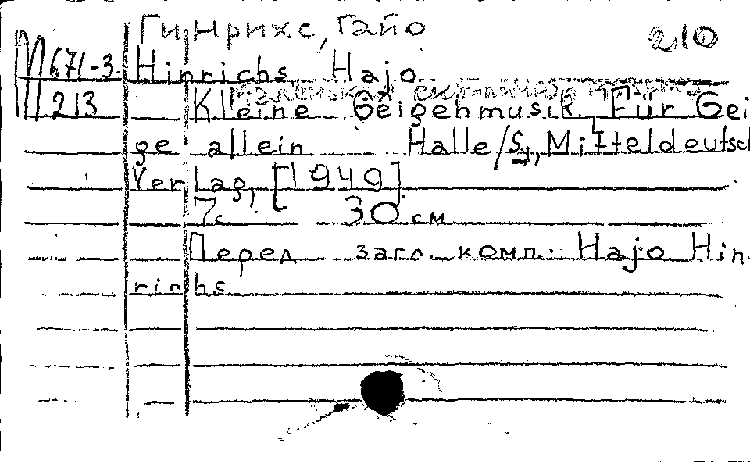 Гинрихс, Гайо
210
М671-3 Hinrichs, Hajo
213 Kleine Geigenmusik. Für Gei
ge allein Halle/S., Mitteldeutsch
Verlag, [1949].
7с. 30 см
Перед загл. комп.: Hajo Hin
richs